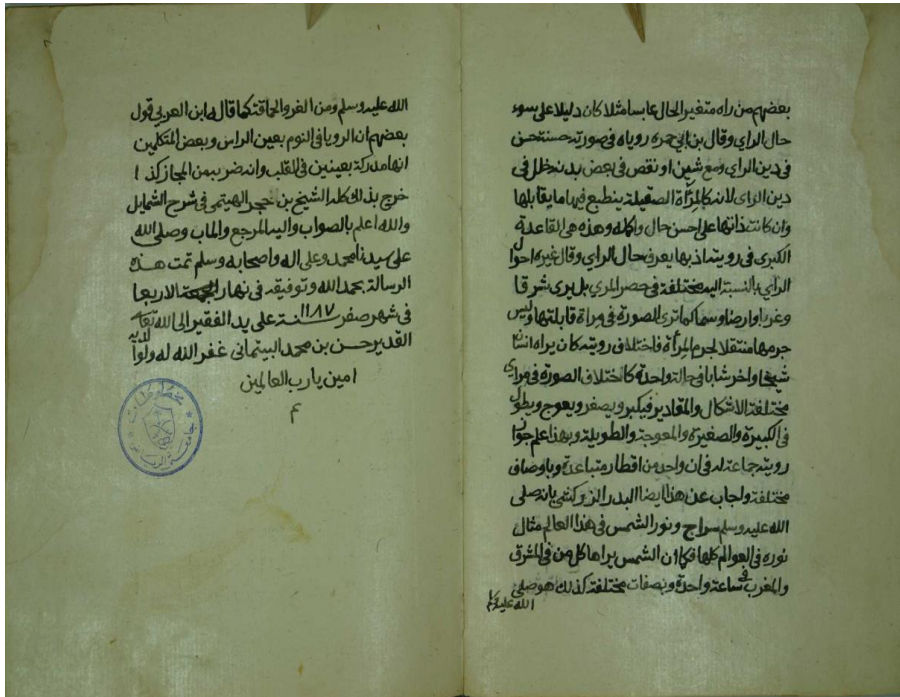 بعضهم من راه متغير الحال عابسا مثلا كان دليلا على سوء
حال الراي وقال بن ابي جمره روياه في صورته حسنة حسن
في دين الراي ومع شين او نقص في بعض بدنه خلل في
دين الراي لانه كالمرآة الصقيلة ينطبع فيها ما يقابلها
وان كانت ذاتها على احسن حال واكمله وهذه هي القاعدة
الكبرى في رويته اذ بها يعرف حال الراي وقال غيره احوال
الراي بالنسبة اليه مختلفة في حصر المري بل يرى شرقا
وغربا وارضا وسما كما ترى الصورة في مراة قابلتها وليس
جرمها منتقلا لجرم المرآة فاختلاف رويته كان يراه انسان
شيخا واخر شابا في حالة واحدة كاختلاف الصورة في مراي
مختلفة الاشكال والمقادير فيكبر ويصغر ويعوج ويطول
في الكبيرة والصغيرة والمعوجة والطويلة وبهذا علم جواز
روية جماعة له في ان واحد من اقطار متباعدة وباوصاف
مختلفة واجاب عن هذا ايضا البدر الزركشي بانه صلى
الله عليه وسلم سراج ونور الشمس في هذا العالم مثال
نوره في العوالم كلها فكما ان الشمس يراها كل من في المشرق
والمغرب في ساعة واحدة وبصفات مختلفة كذلك هو صلى
الله عليه وسلم
الله عليه وسلم ومن الغر والحاقة كما قاله ابن العربي قول
بعضهم ان الرويا في النوم بعين الراس وبعض المتكلمين
انها مدركة بعينين في القلب وانه ضرب من المجاز كذا
خرج بذلك كله الشيخ بن حجر الهيتمي في شرح الشمايل
والله اعلم بالصواب واليه المرجع والماب وصلى الله
على سيدنا محمد وعلى اله واصحابه وسلم تمت هذه
الرسالة بحمد الله وتوفيقه في نهار الجمعة الاربعا
في شهر صفر سنة ١١٨٧ على يد الفقير الى الله تعالى
القدير حسن بن محمد البيتماني غفر الله له ولوالديه
امين يارب العالمين
م
مخطوطات
جامعة الرياض